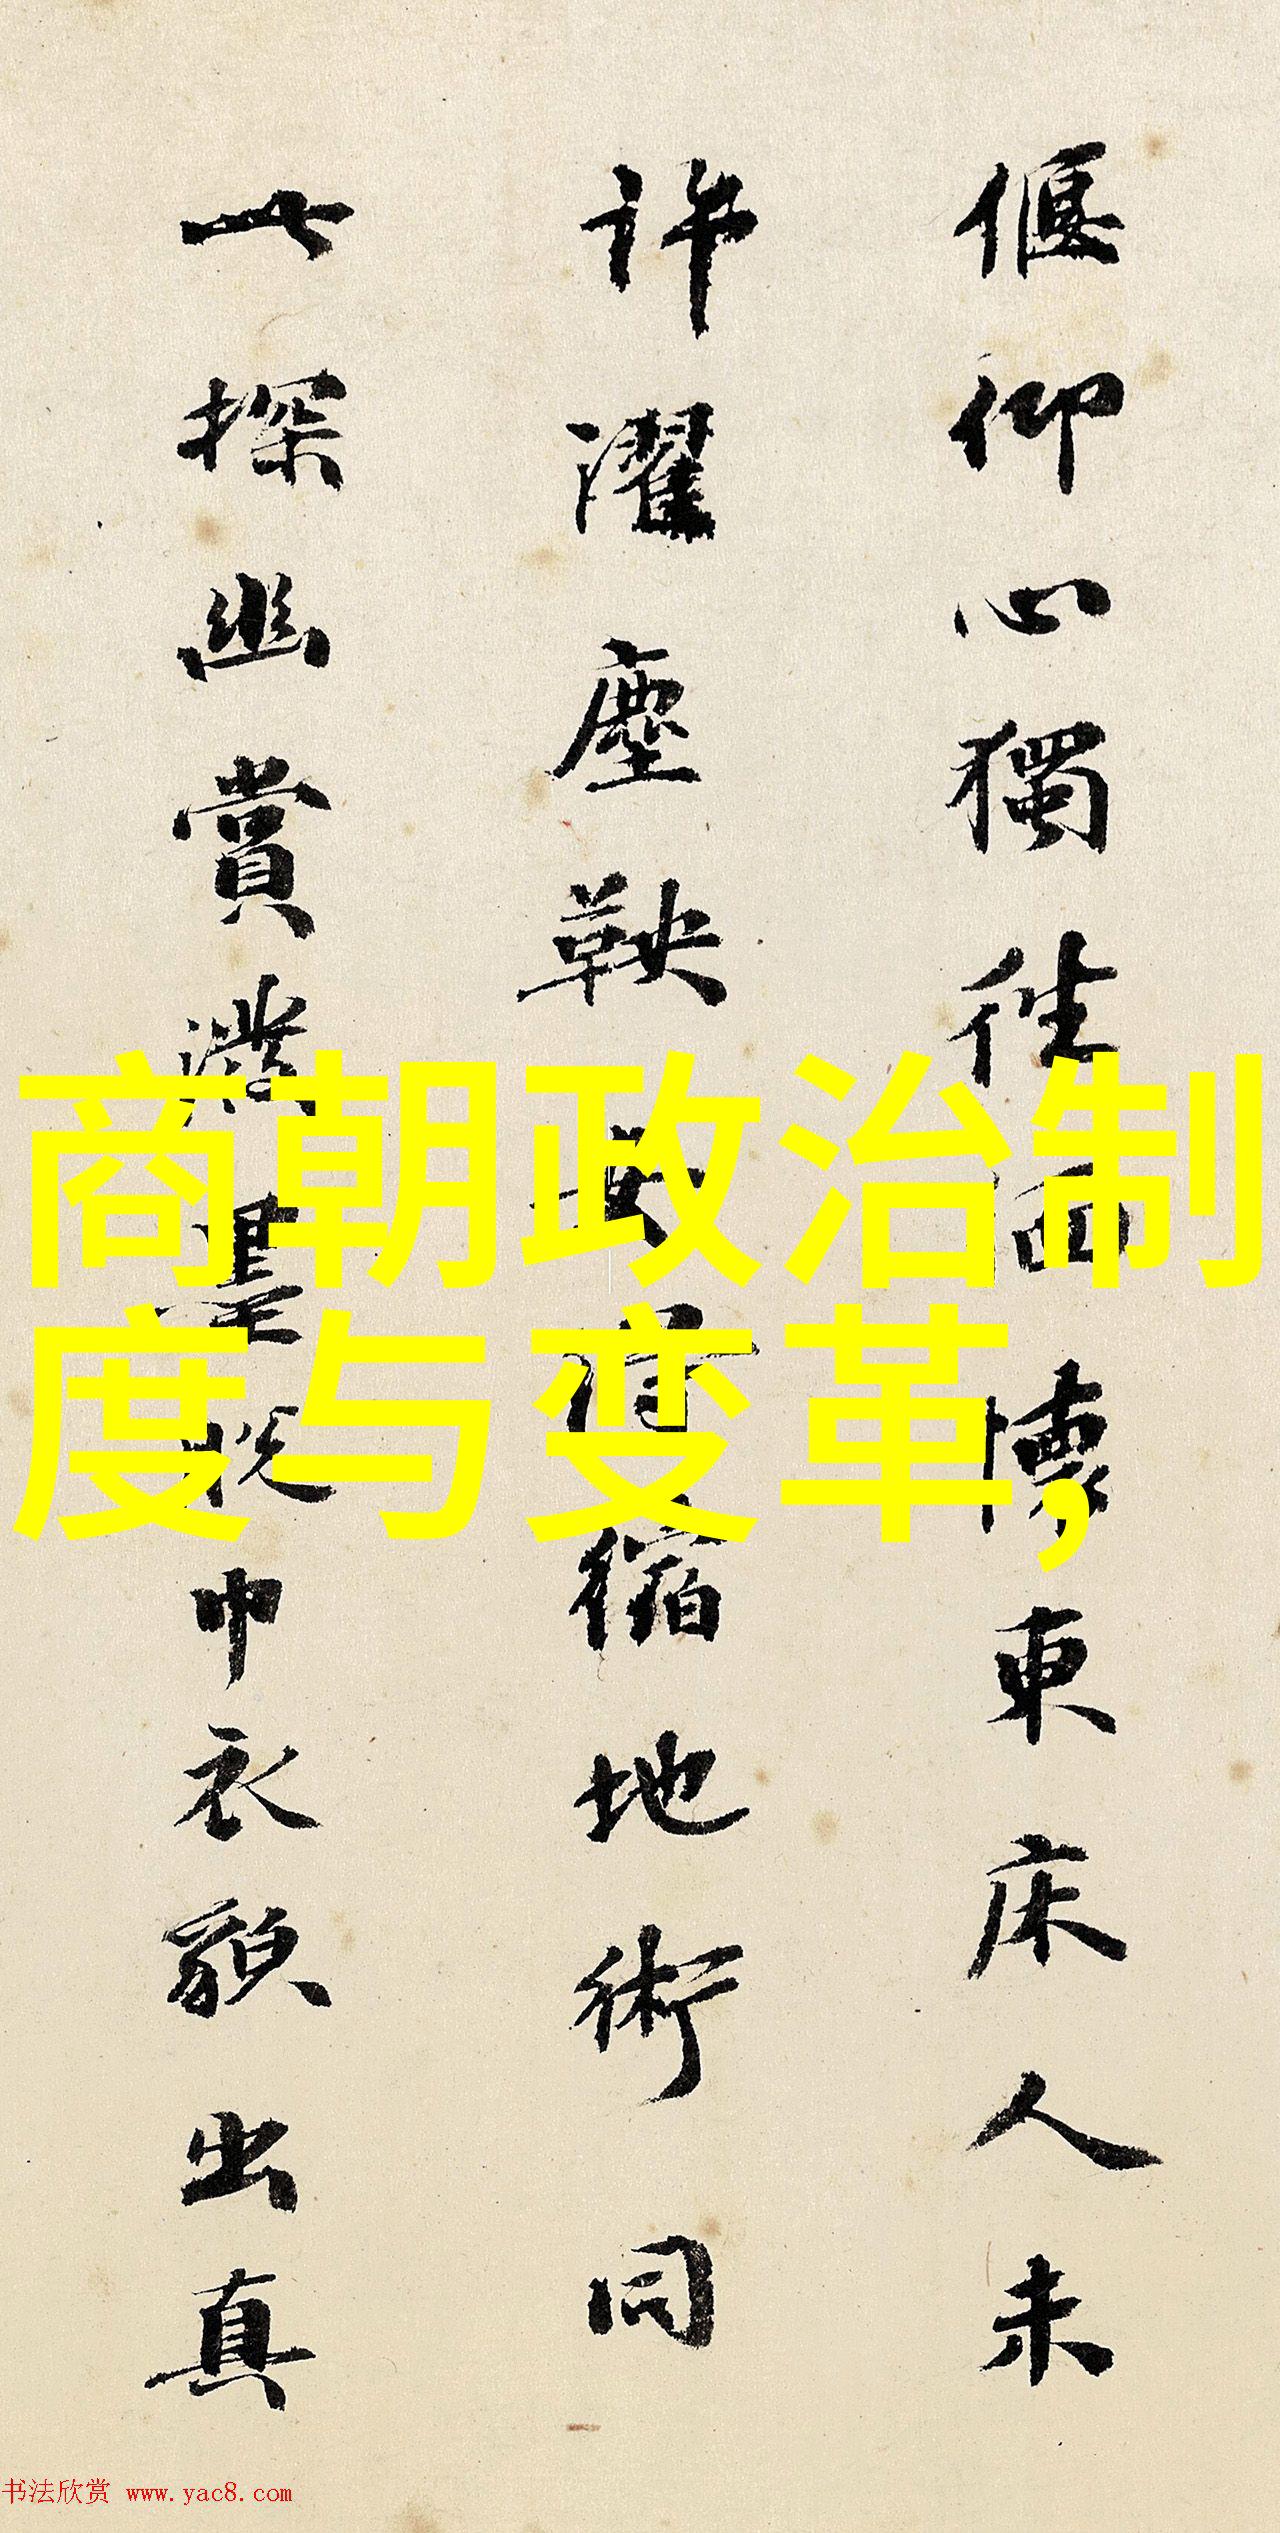 偃仰心獨往西懷東床人未
許濯塵鞅安得縮地術同
一探幽賞濡墨脫巾衣貌出真
商朝政治制
度与变革,
书法欣赏 www.yac8.com